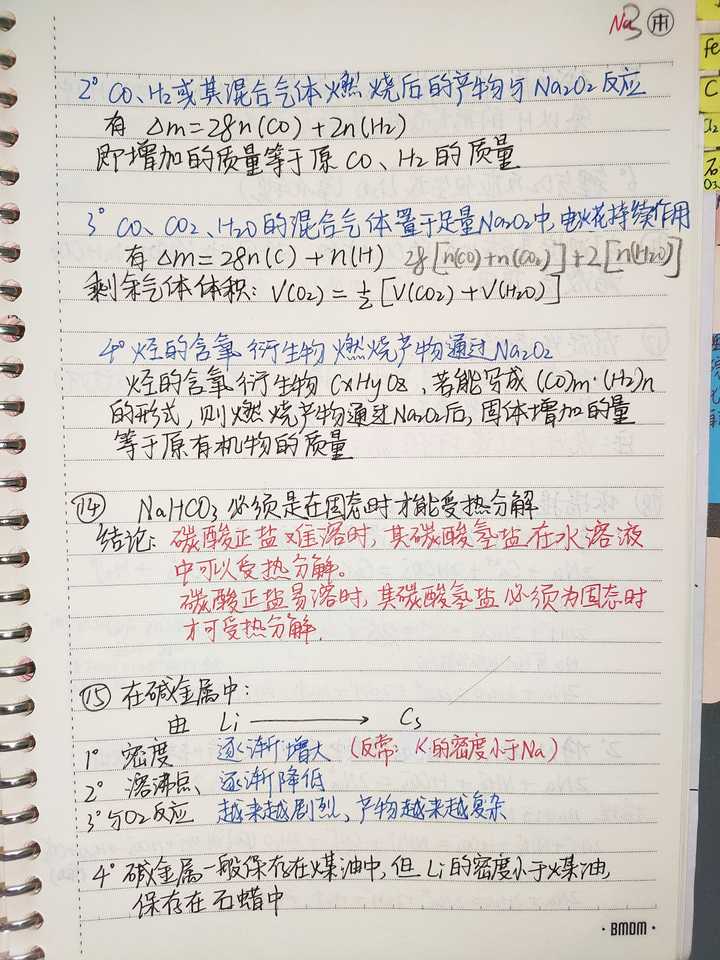 Na
3 ㊍
2° CO、H₂或其混合气体燃烧后的产物与Na₂O₂反应
有 Δm=28n(CO)+2n(H₂)
即增加的质量等于原CO、H₂的质量
3° CO、CO₂、H₂O的混合气体置于足量Na₂O₂中,电火花持续作用
有Δm=28n(C)+n(H) 28[n(CO)+n(CO₂)]+2[n(H₂O)]
剩余气体体积: V(O₂)=½[V(CO₂)+V(H₂O)]
4° 烃的含氧衍生物燃烧产物通过Na₂O₂
烃的含氧衍生物CxHyOz,若能写成(CO)m·(H₂)n
的形式,则燃烧产物通过Na₂O₂后,固体增加的量
等于原有机物的质量
⑭ NaHCO₃必须是在固态时才能受热分解
结论: 碳酸正盐难溶时,其碳酸氢盐在水溶液
中可以受热分解。
碳酸正盐易溶时,其碳酸氢盐必须为固态时
才可受热分解.
⑮ 在碱金属中:
由 Li ⟶ Cs
1° 密度 逐渐增大 (反常: K的密度小于Na)
2° 溶沸点、逐渐降低
3° 与O₂反应 越来越剧烈、产物越来越复杂
4° 碱金属一般保存在煤油中,但Li的密度小于煤油,
保存在石蜡中
· BMDM ·
Fe
C
Cl₂
石